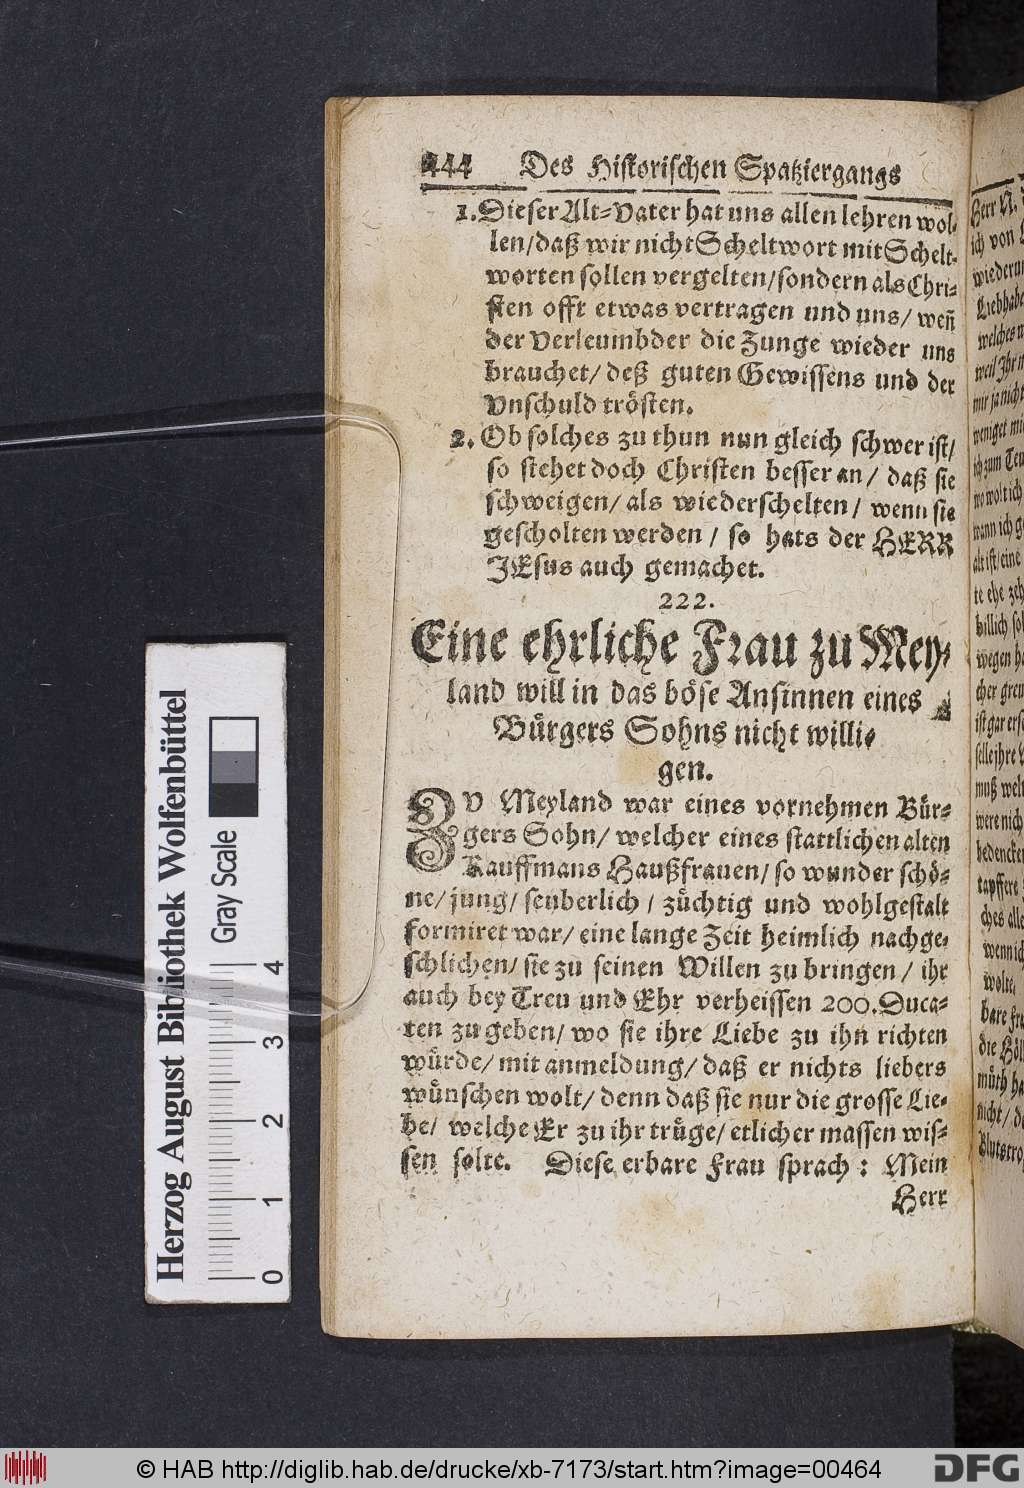 444 Des Historischen Spatziergangs
1. Dieser Alt=Vater hat uns allen lehren wol-
len/daß wir nicht Scheltwort mit Schelt-
worten sollen vergelten/sondern als Chri-
sten offt etwas vertragen und uns/ weñ
der Verleumbder die Zunge wieder uns
brauchet/ deß guten Gewissens und der
Vnschuld trösten.
2. Ob solches zu thun nun gleich schwer ist/
so stehet doch Christen besser an/ daß sie
schweigen/ als wiederschelten/ wenn sie
gescholten werden/ so hats der HERR
JEsus auch gemachet.
222.
Eine ehrliche Frau zu Mey-
land will in das böse Ansinnen eines
Bürgers Sohns nicht willi-
gen.
ZV Meyland war eines vornehmen Bür-
gers Sohn/ welcher eines stattlichen alten
Kauffmans Haußfrauen/ so wunder schö-
ne/ jung/ seuberlich/ züchtig und wohlgestalt
formiret war/ eine lange Zeit heimlich nachge-
schlichen/ sie zu seinen Willen zu bringen/ ihr
auch bey Treu und Ehr verheissen 200. Duca-
ten zu geben/ wo sie ihre Liebe zu ihn richten
würde/ mit anmeldung/ daß er nichts liebers
wünschen wolt/ denn daß sie nur die grosse Lie-
be/ welche Er zu ihr trüge/ etlicher massen wis-
sen solte. Diese erbare Frau sprach: Mein
Herr
Herr N.
ich von
wiederum
Liebhabe
welches
weil Ihr
mir ja nicht
weniget
ich zum Teu
wo wolt ich
wann ich
alt ist/ eine
te ehe
billich
wegen
cher
ist gar
selle jhre
muß
were nich
bedencken
tapffere
ches alle
wenn ich
wolte.
bare Fr
die Höll
müth ha
nicht/
Blutstro
Herzog August Bibliothek Wolfenbüttel
Gray Scale
0 1 2 3 4
© HAB http://diglib.hab.de/drucke/xb-7173/start.htm?image=00464
DFG